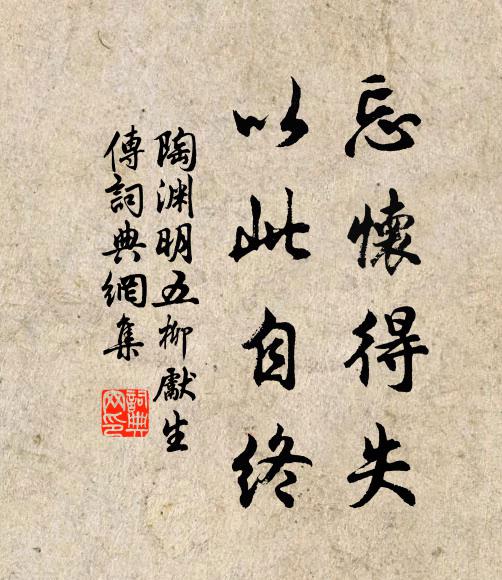 忘懷得失
以此自終
陶渊明五柳獻生
傳詞典網集
詞典网印